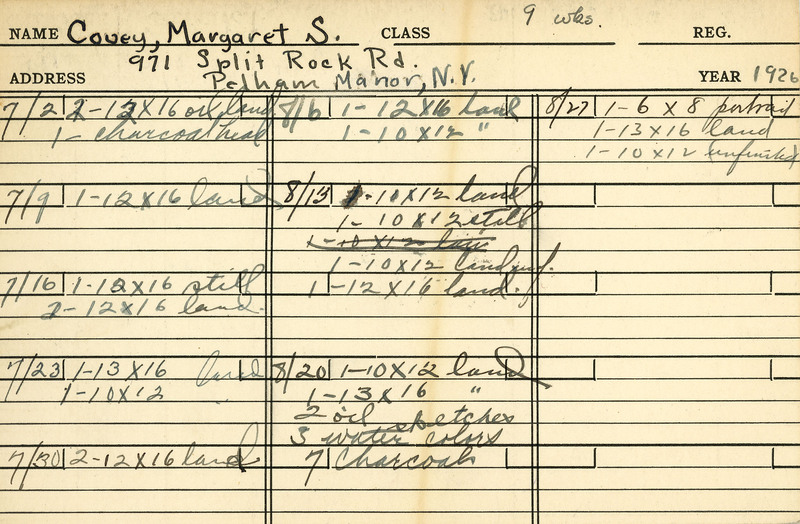 9 wks.
NAME Covey, Margaret S. CLASS REG.
971 Split Rock Rd.
ADDRESS Pelham Manor, N.Y. YEAR 1926
7/2 2-12X16 oil land
1- charcoal head
7/9 1-12X16 land
7/16 1-12X16 still
2-12X16 land.
7/23 1-13X16 land
1-10X12 "
7/30 2-12X16 land
8/6 1-12X16 land
1-10X12 "
8/13 1-10X12 land
1-10X12 still
1-10X12 land
1-10X12 land unf.
1-12X16 land.
8/20 1-10X12 land
1-13X16 "
2 oil sketches
3 water colors
7 charcoals
8/27 1-6 X 8 portrait
1-13X16 land
1-10X12 unfinished